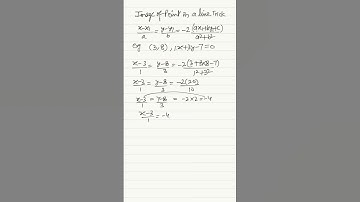 Image of Point in a line Trick
x-x₁/a = y-y₁/b = -2(ax₁+by₁+c)/a²+b²
eg (3,8), 1x+3y-7=0
x-3/1 = y-8/3 = -2(3+3x8-7)/1²+3²
x-3/1 = y-8/3 = -2(20)/10
x-3/1 = y-8/3 = -2x2=-4
x-3/1 = -4